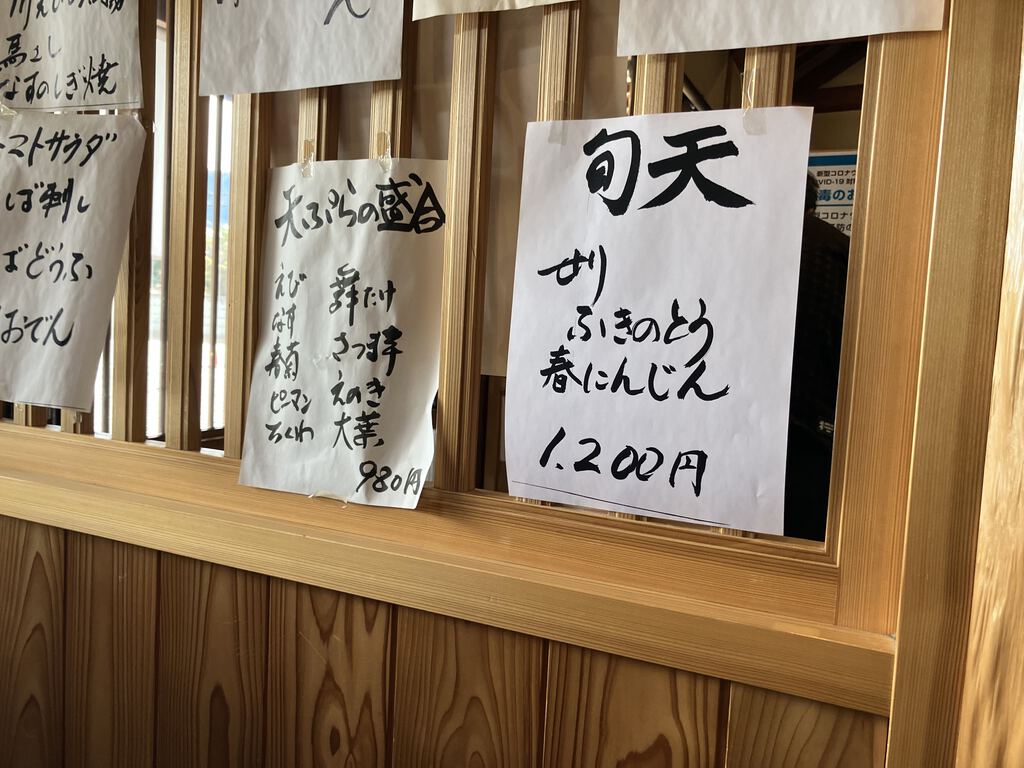 馬さし
なすのしぎ焼
トマトサラダ
おでん
天ぷらの盛合
えび
なす
春菊
ピーマン
ちくわ
舞たけ
さつま芋
えのき
大葉
980円
旬天
せり
ふきのとう
春にんじん
1.200円
新型コロナウ
VID-19 対
毒のお